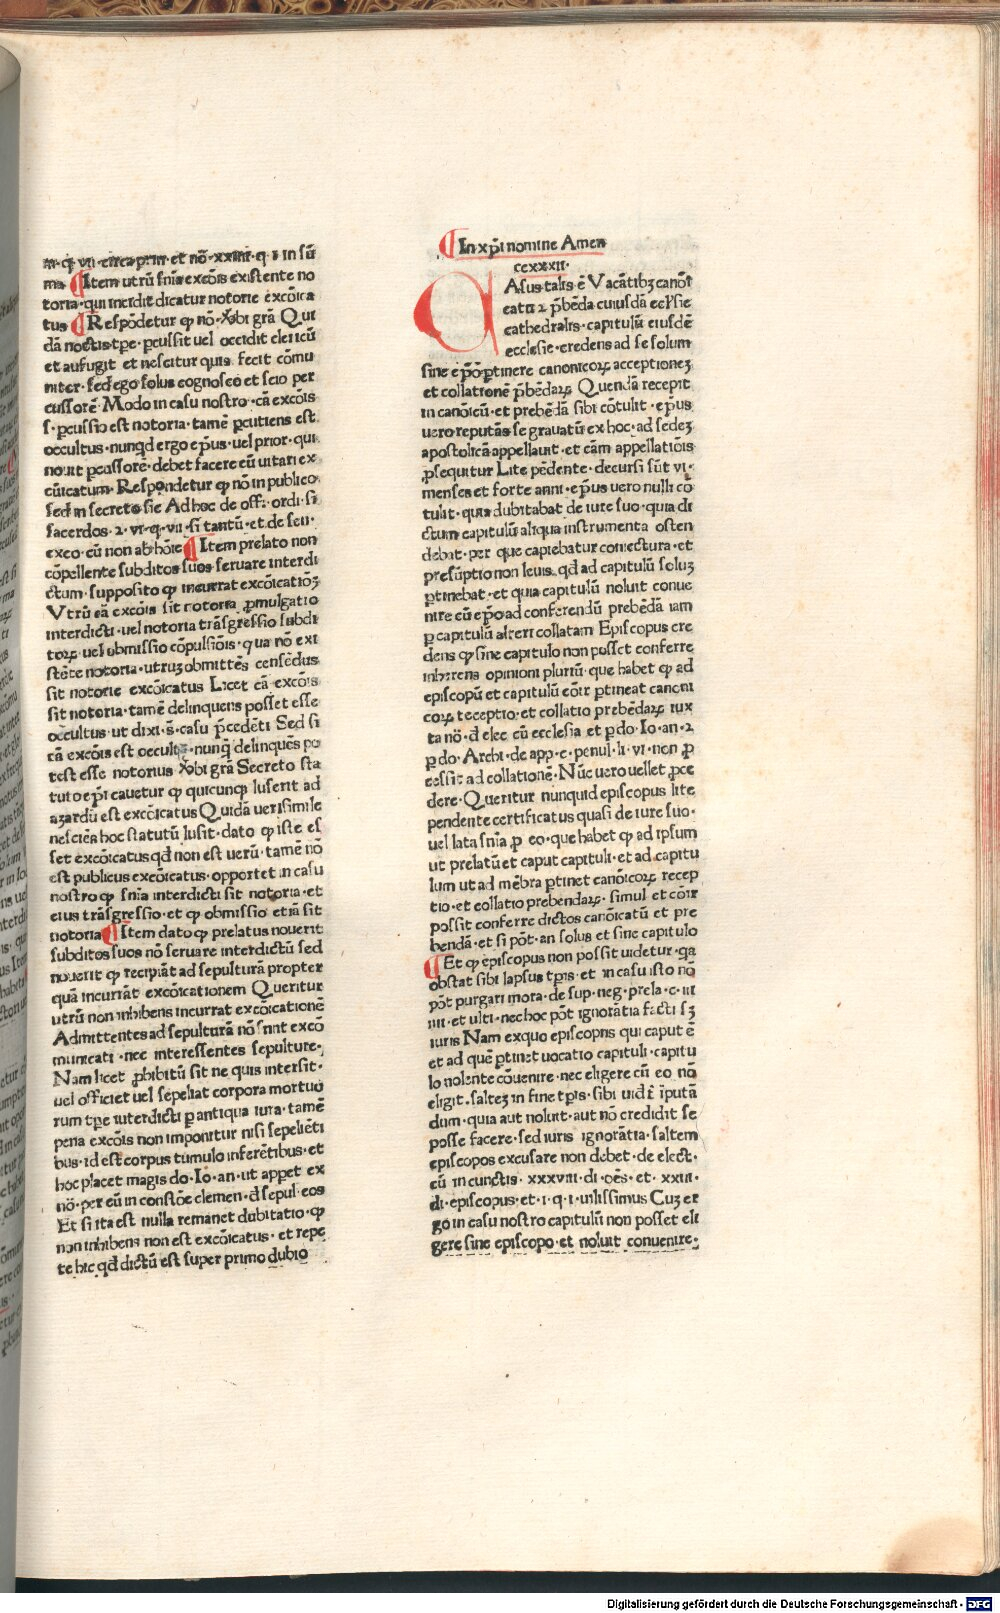 m·q̄ vii circa prin̄ et nō·xxiiii·q·i in sū
ma ¶Item utrū sn̄ia excōis existente no
toria·qui incidit dicatur notorie excōica
tus ¶Respōdetur ꝙ nō·Xbi grā Qui
dā noctis tp̄e·ꝑcussit uel occidit clericū
et aufugit et nescitur quis fecit cōmu
niter·sed ego solus cognosco et scio per
cussorē·Modo in casu nostro·cā excōis
s·ꝑcussio est notoria·tamē ꝑcutiens est
occultus·nunqd ergo ep̄us·uel prior·qui
nouit ꝑcussorē·debet facere cū uitari ex
cūicatum·Respondetur ꝙ nō in publico
sed in secreto sic Ad hoc de offi·ordi·si
sacerdos·2·vi·q·vii·si tantū·et de sen·
exco·cū non ab hōie ¶Item prelato non
cōpellente subditos suos seruare interdi
ctum·supposito ꝙ incurrat excōicatiōʒ
Vtrū cā excōis sit notoria ꝓmulgatio
interdicti·uel notoria trāsgressio subdi
toꝝ uel obmissio cōpulsiōis·qua nō exi
stēte notoria·utruʒ obmittēs censēdus
sit notorie excōicatus Licet cā excōis
sit notoria·tamē delinquens posset esse
occultus·ut dixi·s̄·casu p̄cedēti Sed si
cā excōis est occulta·nunq̄ delinquēs po
test esse notorius Xbi grā Secreto sta
tuto ep̄i cauetur ꝙ quicunqꝫ luserit ad
azardū est excōicatus Quidā uerisimile
nesciēs hoc statutū lusit·dato ꝙ iste es
set excōicatus qd non est uerū·tamē nō
est publicus excōicatus·opportet in casu
nostro ꝙ sn̄ia interdicti sit notoria·et
eius trāsgressio·et ꝙ obmissio etiā sit
notoria ¶Item dato ꝙ prelatus nouerit
subditos suos nō seruare interdictū sed
nouerit ꝙ recipiāt ad sepulturā propter
quā incurrāt excōicationem Queritur
utrū non inhibens incurrat excōicationē
Admittentes ad sepulturā nō sunt excō
municati·nec interessentes sepulture·
Nam licet ꝓhibitū sit ne quis intersit·
uel officiet uel sepeliat corpora mortuo
rum tp̄e interdicti ꝑ antiqua iura·tamē
pena excōis non imponitur nisi sepeliēti
bus·id est corpus tumulo inferētibus·et
hoc placet magis do·Io·an·ut appet ex
nō·per eū in constōe clemen·d sepul·eos
Et si ita est nulla remanet dubitatio·ꝙ
non inhibens non est excōicatus·et repe
te hic qd dictū est super primo dubio
¶In xp̄i nomine Amen
ccxxxii·
CAsus talis ē Vacātibꝫ canōi
catu 2 p̄bēda cuiusdā eccl'sie
cathedralis·capitulū eiusdē
ecclesie·credens ad se solum
sine ep̄o ꝑtinere canonicoꝝ acceptioneʒ
et collationē p̄bēdaꝝ Quendā recepit
in canōicū·et prebēdā sibi cōtulit·ep̄us
uero reputās se grauatū ex hoc·ad sedeʒ
apostolicā appellauit·et cām appellatiōis
ꝓsequitur Lite pēdente·decursi sūt vi·
menses et forte anni·ep̄us uero nulli cō
tulit·quia dubitabat de iure suo·quia di
ctum capitulū aliqua instrumenta osten
debat·per que capiebatur coniectura·et
presūptio non leuis·qd ad capitulū soluʒ
ꝑtinebat·et quia capitulū noluit conue
nire cū ep̄o ad conferendū prebēdā iam
ꝑ capitulū alteri collatam Episcopus cre
dens ꝙ sine capitulo non posset conferre
inherens opinioni pluriū·que habet ꝙ ad
episcopū et capitulū cōīr ꝑtineat canoni
coꝝ receptio·et collatio prebēdaꝝ iux
ta nō·d elec·cū ecclesia et ꝑ do·Io·an·2
ꝑ do·Archi·de app·c·penul·li·vi·non ꝓ
cessit ad collationē·Nūc uero uellet ꝓce
dere·Queritur nunquid episcopus lite
pendente certificatus quasi de iure suo·
uel lata sn̄ia ꝓ eo·que habet ꝙ ad ipsum
ut prelatū et caput capituli·et ad capitu
lum ut ad mēbra ꝑtinet canōicoꝝ recep
tio·et collatio prebendaꝝ·simul et cōīr
possit conferre dictos canōicatū et pre
bendā·et si pōt·an solus et sine capitulo
¶Et ꝙ episcopus non possit uidetur·qa
obstat sibi lapsus tp̄is·et in casu isto no
pōt purgari mora·de sup·neg·prela·c·iii
iiii·et ulti·nec hoc pōt ignorātia facti sʒ
iuris Nam exquo episcopus qui caput ē
et ad quē ꝑtinet uocatio capituli·capitu
lo nolente cōuenire·nec eligere cū eo no
eligit·salteʒ in fine tp̄is·sibi uidet̄ iputā
dum·quia aut noluit·aut nō credidit se
posse facere·sed iuris ignorātia·saltem
episcopos excusare non debet·de elect·
cū in cunctis·xxxviii·di·oēs·et·xxiii·
di·episcopus·et·i·q·i·uilissimus Cuʒ er
go in casu nostro capitulū non posset eli
gere sine episcopo·et noluit conuenire·
Digitalisierung gefördert durch die Deutsche Forschungsgemeinschaft - DFG